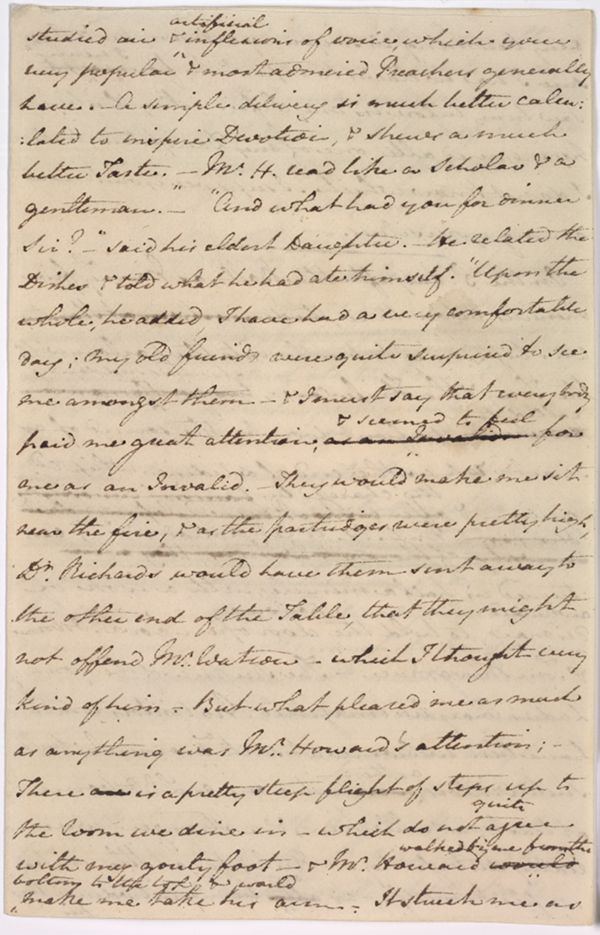 artificial
studied air & inflexions of voice, which your
very popular & most admired Preachers generally
have. – A simple delivery is much better calcu:
:lated to inspire Devotion, & shews a much
better Taste. – Mr. H. read like a Scholar & a
gentleman." – "And what had you for dinner
Sir?" – said his eldest Daughter. – He related the
Dishes & told what he had ate himself. "Upon the
whole, he added, I have had a very comfortable
day; my old friends were quite surprised to see
me amongst them – & I must say that everybody
& seemed to feel
paid me great attention, as an Invalid for
me as an Invalid. – They would make me sit
near the fire, & as the partridges were pretty high,
Dr. Richards would have them sent away to
the other end of the Table, that they might
not offend Mr. Watson – which I thought very
kind of him – But what pleased me as much
as anything was Mr. Howard's attention; –
There is a pretty steep flight of steps up to
quite
the room we dine in – which do not agree
walked by me from the
with my gouty foot – & Mr. Howard would
bottom to the top, & would
make me take his arm. – It struck me as